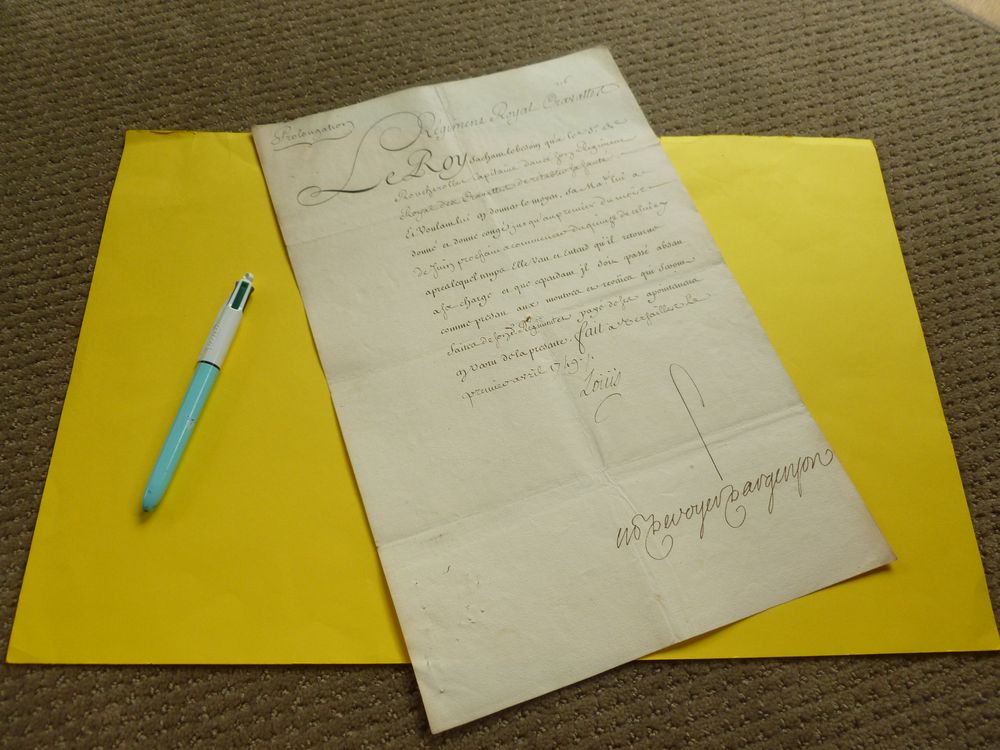 Prolongation
Régiment Royal Cravattes
Le Roy Sachant le besoin qu'a le S.r de
Roucherolles Capitaine dans son Régiment
Royal des Cravattes de retablir sa santé
Et Voulant lui en donner le moyen. Sa Ma.té lui a
donné et donne congé jusqu'au premier du mois
de Juin prochain a commencer du quinze de celui cy
apres lequel temps Elle Veut et Entend qu'il retourne
a sa charge et que cependant il soit passé absent
comme present aux montres et revües qui seront
faites de son d. Régiment et payé de ses apointemens
en vertu de la presente. fait a Versailles le
premier avril 1749./.
Louis
M P de voyer d'argenson